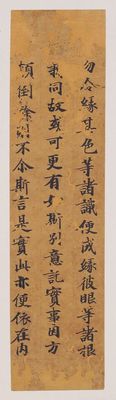 勿令緣其色等諸識便成緣彼眼等諸根
同故或可更有別意託實事因方
倒不尒斯言是實此亦便依在内